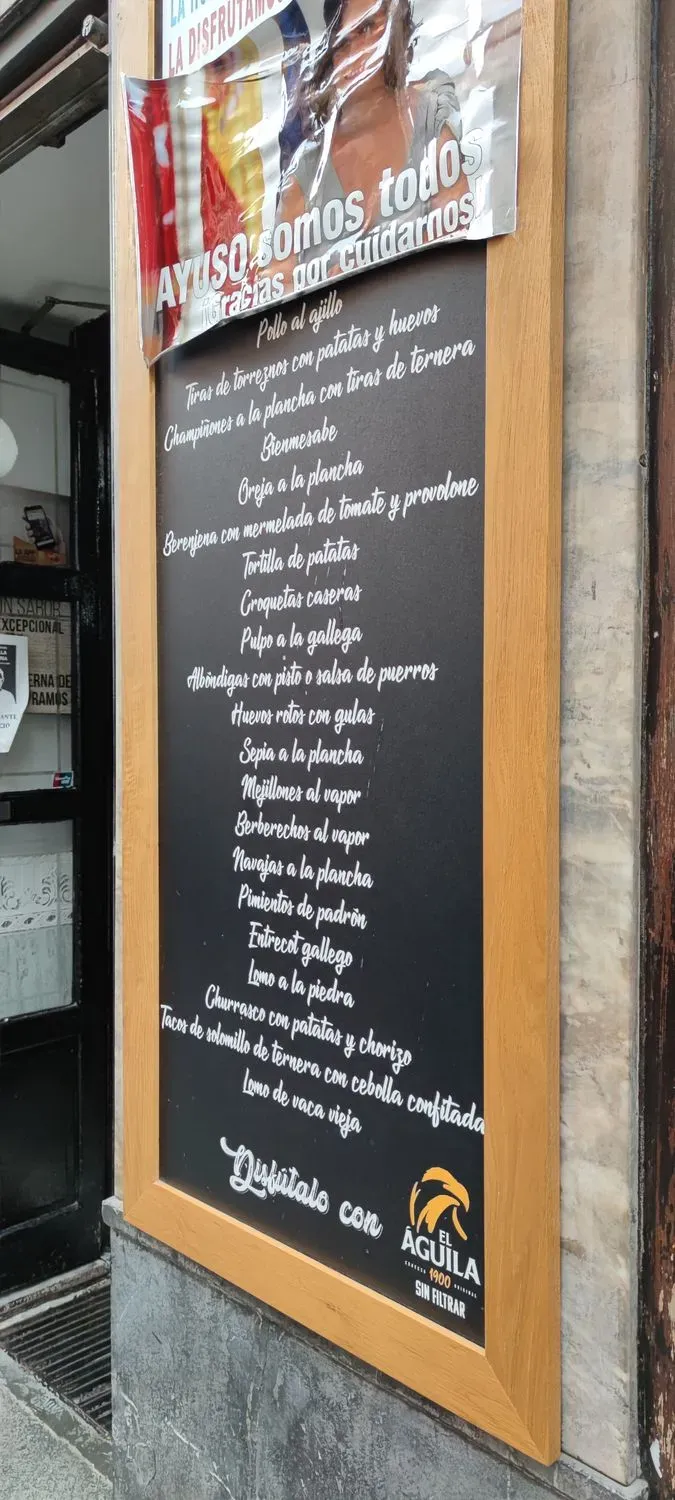 LA DISFRUTAMOS
AYUSO somos todos
¡Gracias por cuidarnos!
Pollo al ajillo
Tiras de torreznos con patatas y huevos
Champiñones a la plancha con tiras de ternera
Bienmesabe
Oreja a la plancha
Berenjena con mermelada de tomate y provolone
Tortilla de patatas
Croquetas caseras
Pulpo a la gallega
Albóndigas con pisto o salsa de puerros
Huevos rotos con gulas
Sepia a la plancha
Mejillones al vapor
Berberechos al vapor
Navajas a la plancha
Pimientos de padrón
Entrecot gallego
Lomo a la piedra
Churrasco con patatas y chorizo
Tacos de solomillo de ternera con cebolla confitada
Lomo de vaca vieja
Disfútalo con
EL
ÁGUILA
1900
SIN FILTRAR
SABOR
EXCEPCIONAL
RAMOS